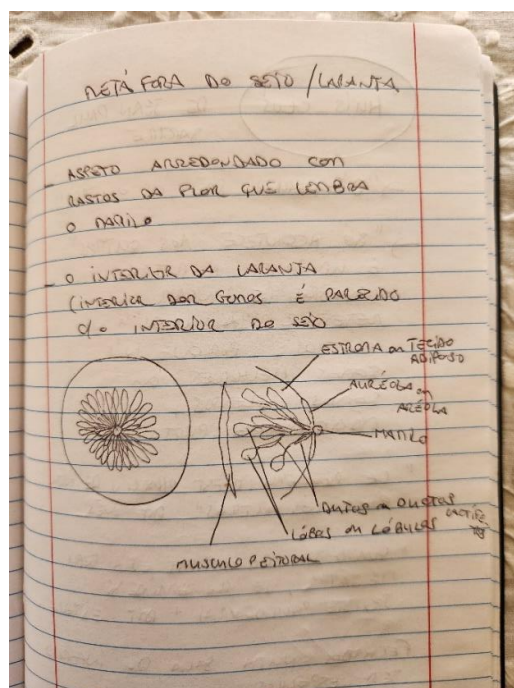 METÁFORA DO SEIO / LARANJA
- ASPETO ARREDONDADO COM
RASTOS DA FLOR QUE LEMBRA
O MAMILO
- O INTERIOR DA LARANJA
(INTERIOR DOS GOMOS É PARECIDO
C/ O INTERIOR DO SEIO
ESTROMA ou TECIDO
ADIPOSO
AURÉOLA ou
ARÉOLA
MAMILO
DUTOS ou DUCTOS
LÓBOS ou LÓBULOS
MUSCULO PEITORAL